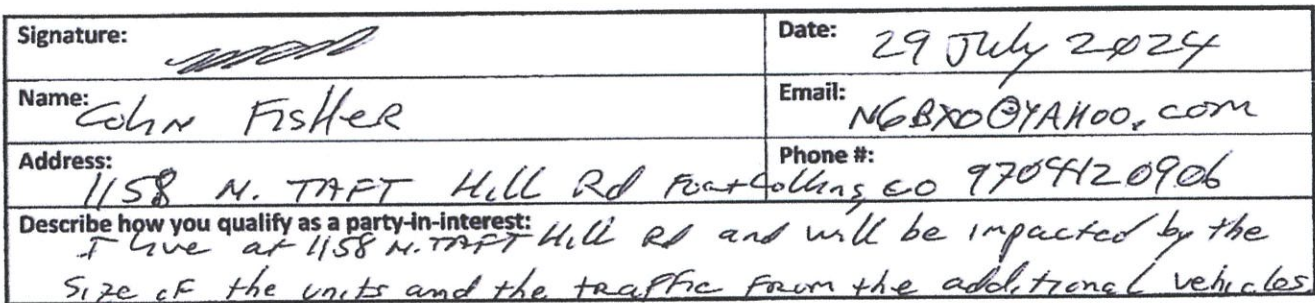 Signature:
Date: 29 July 2024
Name: Colin Fisher
Email: N6BXO@YAHOO.com
Address: 1158 N. TAFT Hill Rd Fort Collins, CO
Phone #: 9704120906
Describe how you qualify as a party-in-interest:
I live at 1158 N. TAFT Hill Rd and will be impacted by the
size of the units and the traffic from the additional vehicles